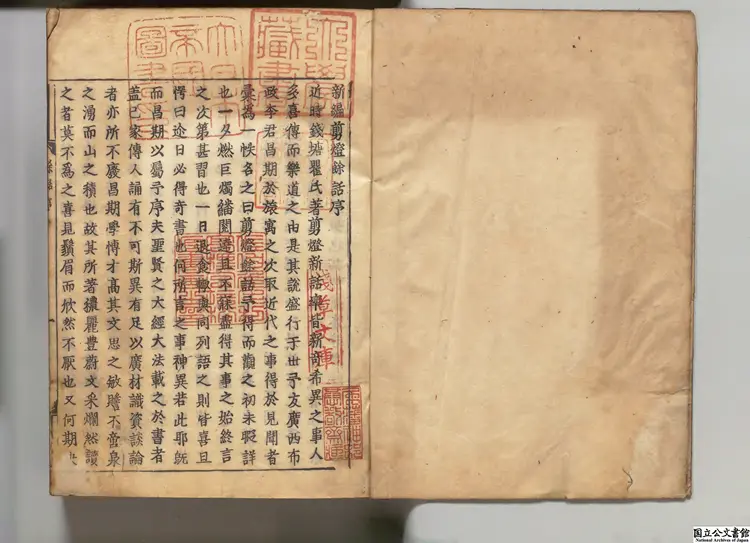 新編剪燈餘話序
近時錢塘瞿氏著剪燈新話率皆新奇希異之事人
多喜傳而樂道之由是其說盛行于世予友廣西布
政李君昌期於旅寓之次取近代之事得於見聞者
彙為一帙名之曰剪燈餘話予得而觀之初未暇詳
也一夕燃巨燭繙閱達旦不寐盡得其事之始終言
之次第甚習也一日退食輒與同列語之則皆喜且
愕曰邇日必得奇書也何所言之事神異若此耶既
而昌期以屬予序夫聖賢之大經大法載之於書者
蓋已家傳人誦有不可斯異有足以廣材識資談論
者亦所不廢昌期學博才高其文思之敏贍不啻泉
之湧而山之積也故其所著穠麗豐蔚文采爛然讀
之者莫不為之喜見鬚眉而欣然不厭也又何期
淺草文庫
国立公文書館
National Archives of Japan